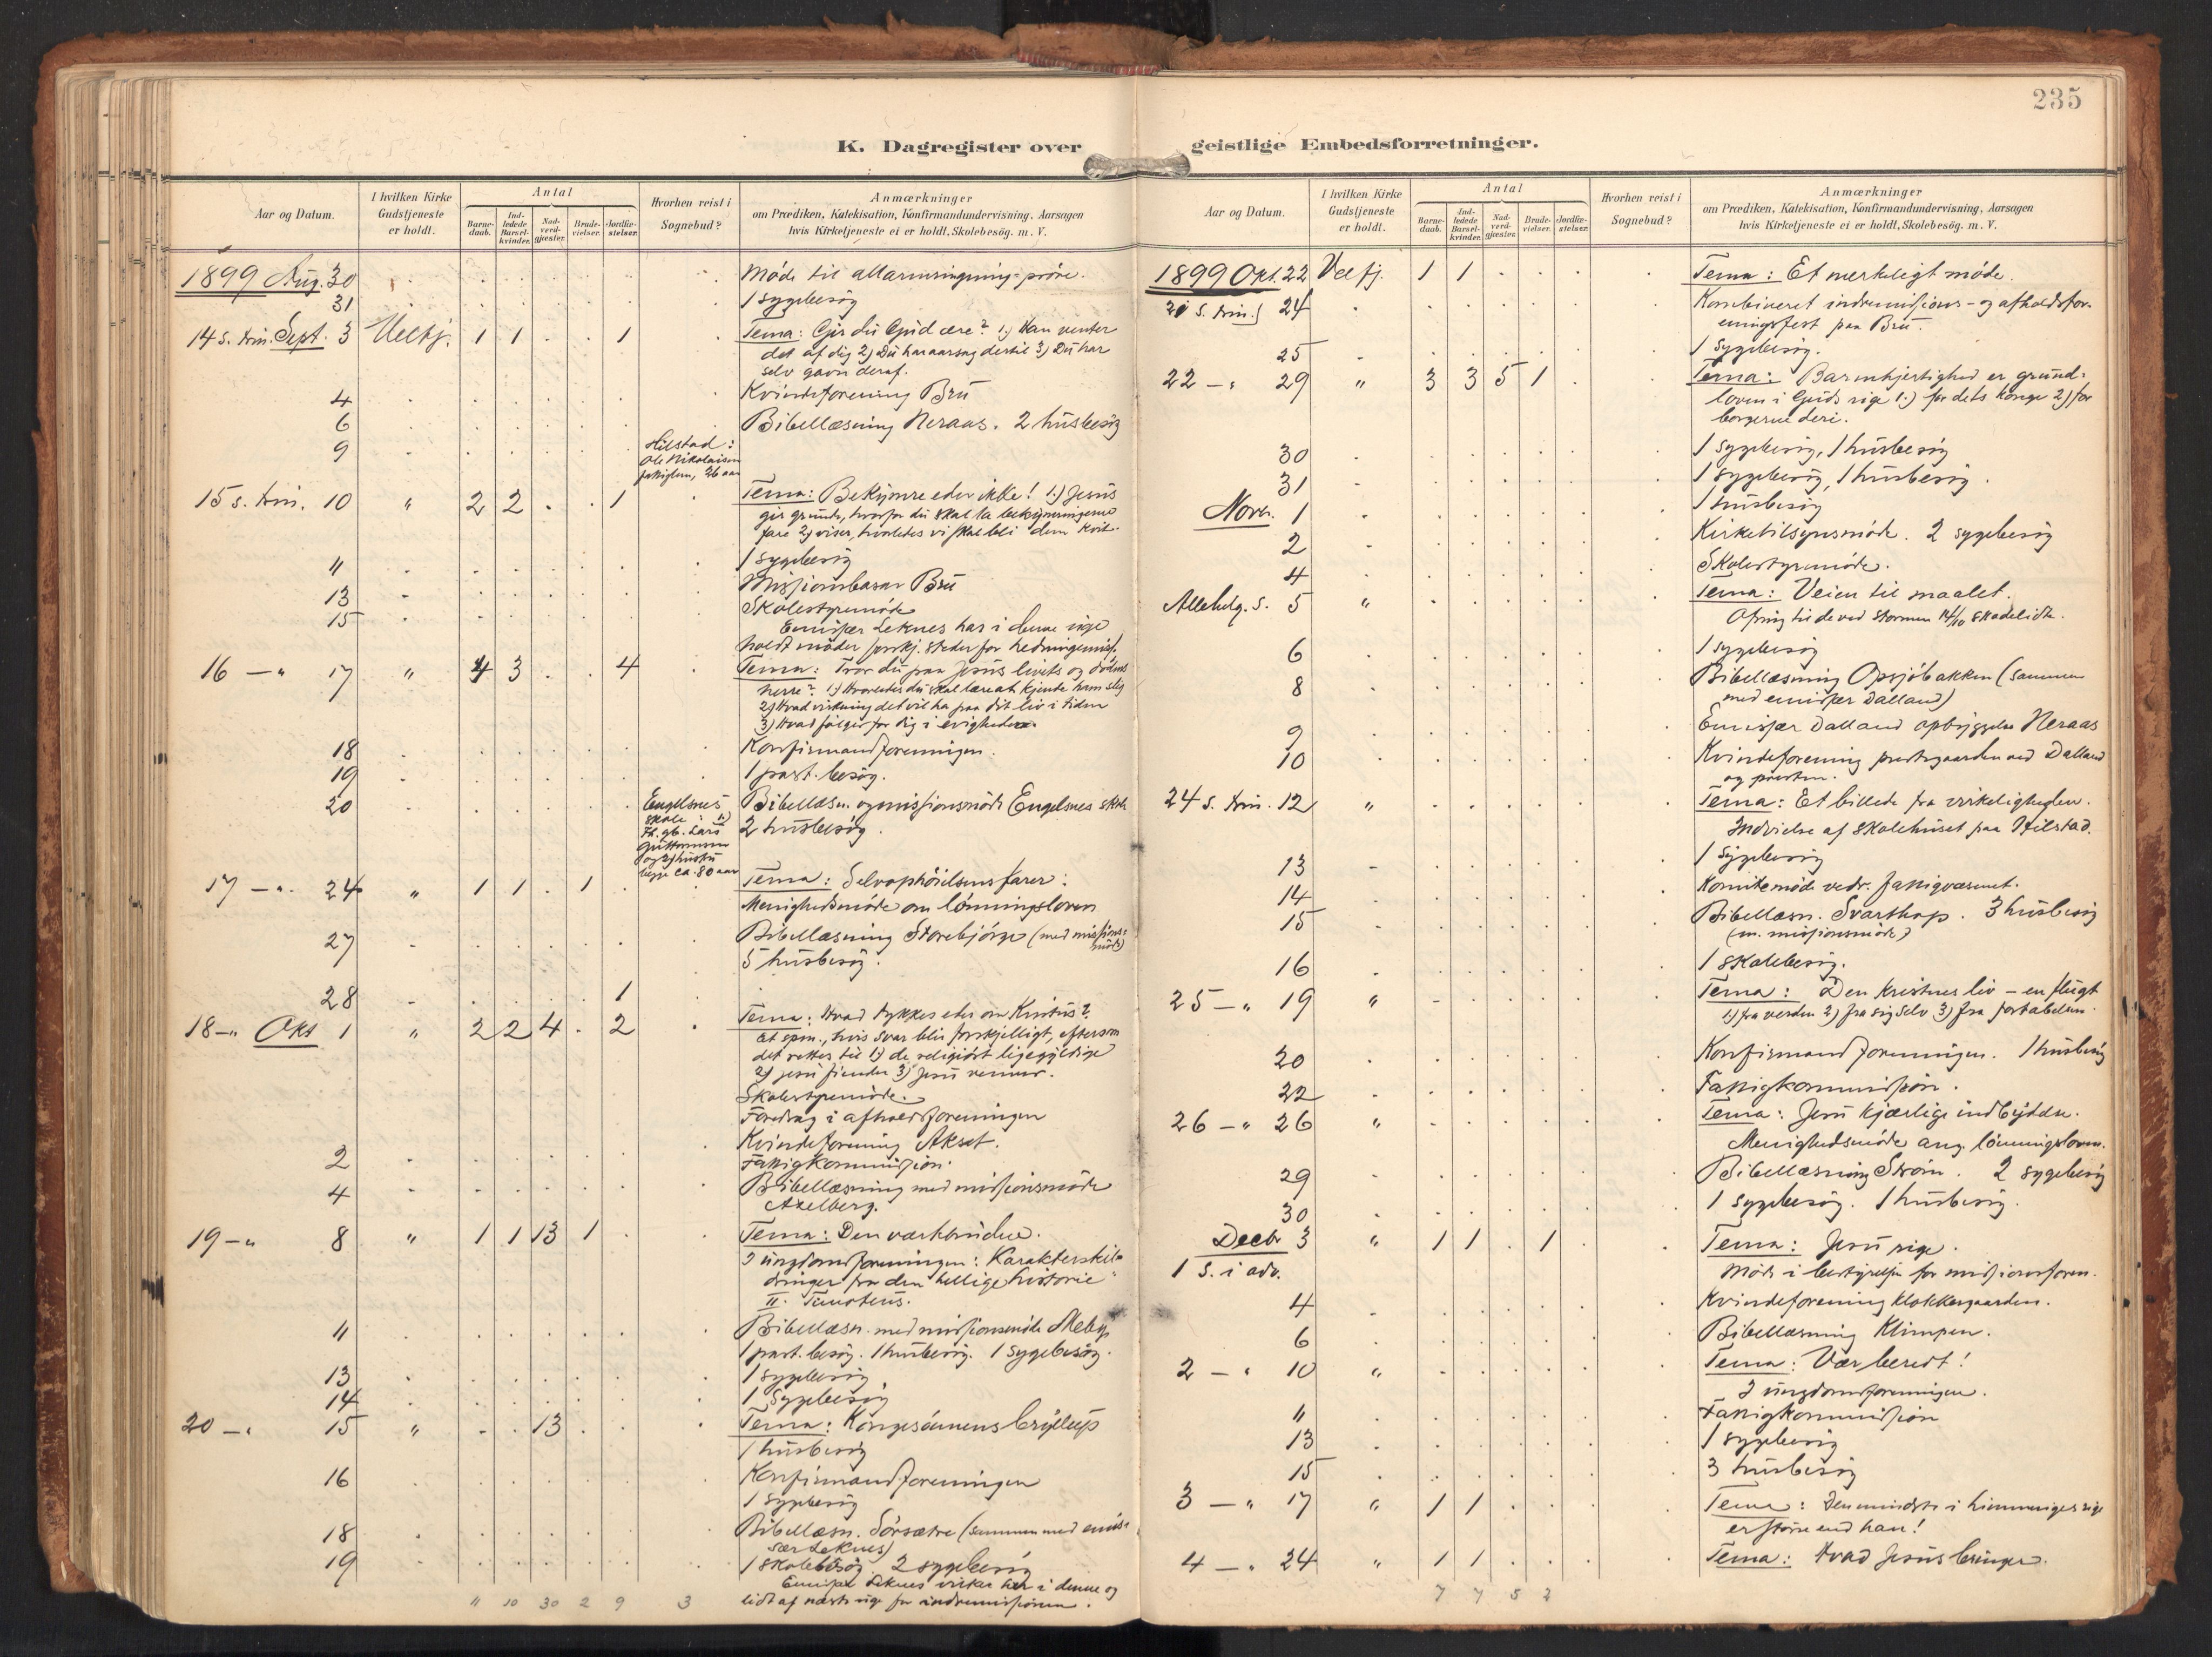 235
K. Dagregister over geistlige Embedsforretninger.
Aar og Datum.
I hvilken Kirke Gudstjeneste er holdt.
Antal
Barne-daab.
Ind-ledede Barsel-kvinder.
Nad-verd-gjæster.
Brude-vielser.
Jordfæ-stelser.
Hvorhen reist i Sognebud?
Anmærkninger
om Prædiken, Katekisation, Konfirmandundervisning, Aarsagen
hvis Kirketjeneste ei er holdt, Skolebesög. m. V.
1899 Aug. 30 Møde til alarmringning-prøve.
31 1 sygebesøg
14 s. trin. Sept. 3 1 1 . . 1 Tema: Gir du Gud ære? 1.) Han venter
det af dig 2) Du har aarsag dertil 3) Du har
selv gavn deraf.
4 Kvindeforening Brü
6 Bibellæsning Neraas. 2 husbesøg
9 Hilstad:
Ole Nikolaisen
15 s. trin. 10 " 2 2 . . 1 Tema: Bekymre eder ikke! 1.) Jesus
gir grunde, hvorfor du skal la bekymringerne
fare 2) viser, hvorledes vi skal bli dem kvit.
11 1 sygebesøg
13 Missionsbasar Brü
15 Skolestyremøde
Emissær Leknes har i denne uge
holdt møder forskj. steder for hedningemiss.
16 — " 17 " 4 3 . . 4 Tema: Tror du paa Jesus livets og dødens
herre? 1.) Hvorledes du skal lære at kjende ham slig
2) Hvad virkning det vil ha paa dit liv i tiden
3) Hvad følger for dig i evigheden.
18 Konfirmandforeningen.
19 1 past. besøg.
20 Engelsnes skole: 1) Bibellæsn. og missionsmøde Engelsnes skole
Lars Guttormsen 2 husbesøg.
begge ca. 80 aar
17 — " 24 " 1 1 . 1 Tema: Selvophøielsens farer.
Menighedsmøde om lønningsloven
27 Bibellæsning Storebjørge (med missions-
møde)
5 husbesøg.
28 1
18 — " Okt 1 " 2 2 4 . 2 Tema: Hvad tykkes eder om Kristus?
et spm., hvis svar blir forskjelligt, eftersom
det rettes til 1) de religiøst ligegyldige
2) Jesu fiender 3) Jesu venner.
Skolestyremøde.
Foredrag i afholdsforeningen
2 Kvindeforening Akset.
Fattigkommission.
4 Bibellæsning med missionsmøde
Axelberg.
19 — " 8 " 1 1 13 1 Tema: Den værkbrudne.
I ungdomsforeningen: Karakterskil-
dringer fra den hellige historie
II. Timoteus.
11 Bibellæsn. med missionsmøde Meby
1 past. besøg. 1 husbesøg. 1 sygebesøg.
13 1 sygebesøg.
14 1 sygebesøg
20 — " 15 " . . 13 Tema: Kongesønnens bryllup
1 husbesøg
16 Konfirmandforeningen
1 sygebesøg
18 Bibellæsn. Sørsætre (sammen med emis-
sær Leknes)
19 1 skolebesøg 2 sygebesøg
Emissær Leknes virker her i denne og
lidt af næste uge for indremissionen.
11 10 30 2 9 3
Aar og Datum.
I hvilken Kirke Gudstjeneste er holdt.
Antal
Barne-daab.
Ind-ledede Barsel-kvinder.
Nad-verd-gjæster.
Brude-vielser.
Jordfæ-stelser.
Hvorhen reist i Sognebud?
Anmærkninger
om Prædiken, Katekisation, Konfirmandundervisning, Aarsagen
hvis Kirketjeneste ei er holdt, Skolebesög. m. V.
1899 Okt. 22 Velfj. 1 1 Tema: Et merkeligt møde.
21 s. trin. 24 Kombineret indremissions- og afholdsfor-
eningsfest paa Brü.
25 1 sygebesøg.
22 — " 29 " 3 3 5 1 Tema: Barmhjertighed er grund-
loven i Guds rige 1.) for dets konge 2) for
borgerne deri.
30 1 sygebesøg, 1 husbesøg
31 1 sygebesøg, 1 husbesøg.
Novr. 1 1 husbesøg
2 Kirketilsynsmøde. 2 sygebesøg
4 Skolestyremøde.
Allehelg. s. 5 " Tema: Veien til maalet.
Ofring til de ved stormen 14/10 skadelidte.
6 1 sygebesøg
8 Bibellæsning Opsjøbakken (sammen
med emissær Dalland)
9 Emissær Dalland opbyggelse Neraas
10 Kvindeforening prestegaarden ved Dalland
og presten.
24 s. trin. 12 " Tema: Et billede fra virkeligheden.
Indvielse af skolehuset paa Hilstad.
13 1 sygebesøg
14 Komitemøde vedr. fattigvæsenet.
15 Bibellæsn. Svarthop. 3 husbesøg
(m. missionsmøde)
16 1 skolebesøg.
25 — " 19 " Tema: Den kristnes liv – en flugt
1) fra verden 2) fra sig selv 3) fra fortabelsen.
20 Konfirmandforeningen. 1 husbesøg
22 Fattigkommission.
26 — " 26 " Tema: Jesu kjærlige indbydelse.
Menighedsmøde ang. lønningsloven.
29 Bibellæsning Strøm. 2 sygebesøg
30 1 sygebesøg. 1 husbesøg.
Decbr 3 " 1 1 . 1 Tema: Jesu rige.
1 s. i adv. Møde i bestyrelsen for missionsforen.
4 Kvindeforening Klokkergaarden.
6 Bibellæsning Klimpen.
2 — " 10 " Tema: Vær beredt!
I ungdomsforeningen.
11 Fattigkommission
13 1 sygebesøg
15 3 husbesøg
3 — " 17 " 1 1 Tema: Den mindste i himmeriges rige
er større end han!
4 — " 24 " 1 1 Tema: Hvad Jesus bringer.
7 7 5 2